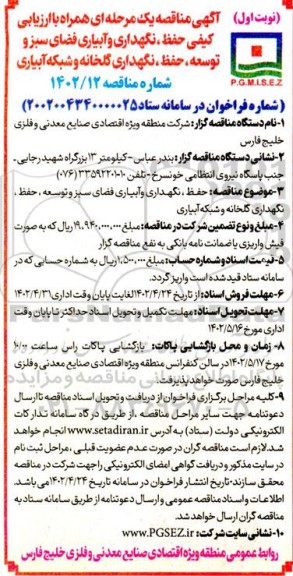 (نوبت اول)
آگهی مناقصه یک مرحله ای همراه با ارزیابی
کیفی حفظ ، نگهداری و آبیاری فضای سبز و
توسعه ، حفظ ، نگهداری گلخانه و شبکه آبیاری
شماره مناقصه ۱۴۰۲/۱۲
P.G.M.I.S.E.Z
( شماره فراخوان در سامانه ستاد ۲۰۰۲۰۰۴۳۴۰۰۰۰۰۲۵)
۱-نام دستگاه مناقصه گزار: شرکت منطقه ویژه اقتصادی صنایع معدنی و فلزی
خلیج فارس
۲-نشانی دستگاه مناقصه گزار: بندر عباس- کیلومتر ۱۳ بزرگراه شهید رجایی-
جنب پاسگاه نیروی انتظامی خونسرخ - تلفن ۳۳۵۹۲۲۰۱۰۱۰ (۰۷۶)
۳-موضوع مناقصه: حفظ ، نگهداری و آبیاری فضای سبز و توسعه ، حفظ ،
نگهداری گلخانه و شبکه آبیاری
۴-مبلغ و نوع تضمین شرکت در مناقصه: مبلغ ۱۹,۹۴۰,۰۰۰,۰۰۰ ریال که به صورت
فیش واریزی یا ضمانت نامه بانکی به نفع مناقصه گزار
۵-قیمت اسناد و شماره حساب: مبلغ ۱,۵۰۰,۰۰۰ ریال به شماره حسابی که در
سامانه ستاد قید شده است واریز گردد.
۶-مهلت فروش اسناد: از تاریخ ۱۴۰۲/۴/۲۴ لغایت پایان وقت اداری ۱۴۰۲/۴/۳۱
۷-مهلت تحویل اسناد: مهلت تکمیل و تحویل اسناد حداکثر تا پایان وقت
اداری مورخ ۱۴۰۲/۵/۱۶
۸- زمان و محل بازگشایی پاکات: بازگشایی پاکات راس ساعت ۱۰:۰۰
مورخ ۱۴۰۲/۵/۱۷ در سالن کنفرانس منطقه ویژه اقتصادی صنایع معدنی و فلزی
خلیج فارس صورت خواهد پذیرفت.
۹-کلیه مراحل برگزاری فراخوان از دریافت و تحویل اسناد مناقصه تا ارسال
دعوتنامه جهت سایر مراحل مناقصه ، از طریق درگاه سامانه تدارکات
الکترونیکی دولت (ستاد) به آدرس www.setadiran.ir انجام خواهد
شد. لازم است مناقصه گران در صورت عدم عضویت قبلی ، مراحل ثبت نام
در سایت مذکور و دریافت گواهی امضای الکترونیکی را جهت شرکت در مناقصه
محقق سازند. تاریخ انتشار فراخوان در سامانه تاریخ ۱۴۰۲/۴/۲۴ می باشد.
اطلاعات و اسناد مناقصه عمومی و ارسال دعوتنامه از طریق سامانه ستاد به
مناقصه گران ارسال خواهد شد.
۱۰-نشانی سایت شرکت: www.PGSEZ.ir
روابط عمومی منطقه ویژه اقتصادی صنایع معدنی و فلزی خلیج فارس